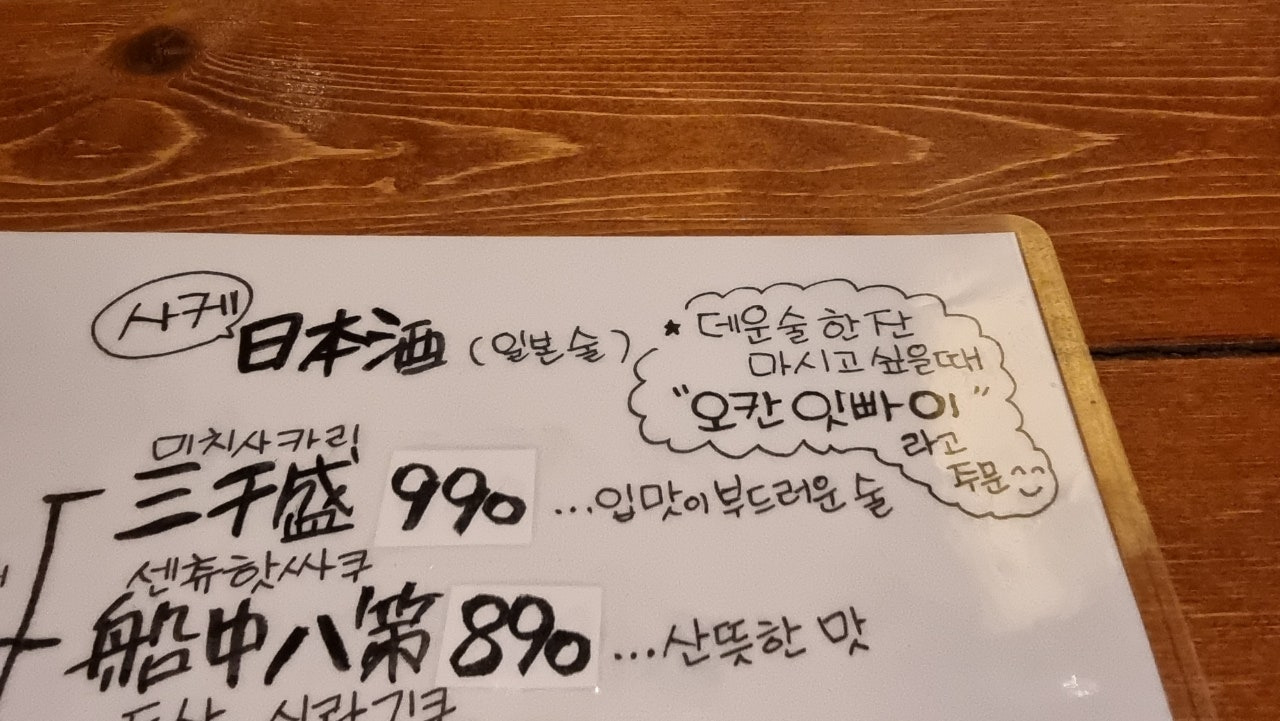 사케
日本酒 (일본술)
★ 데운 술 한 잔
마시고 싶을때
"오칸 잇빠이"
라고
주문
미치사카리
三千盛 990 ...입맛이 부드러운 술
센츄핫싸쿠
船中八策 890 ...산뜻한 맛